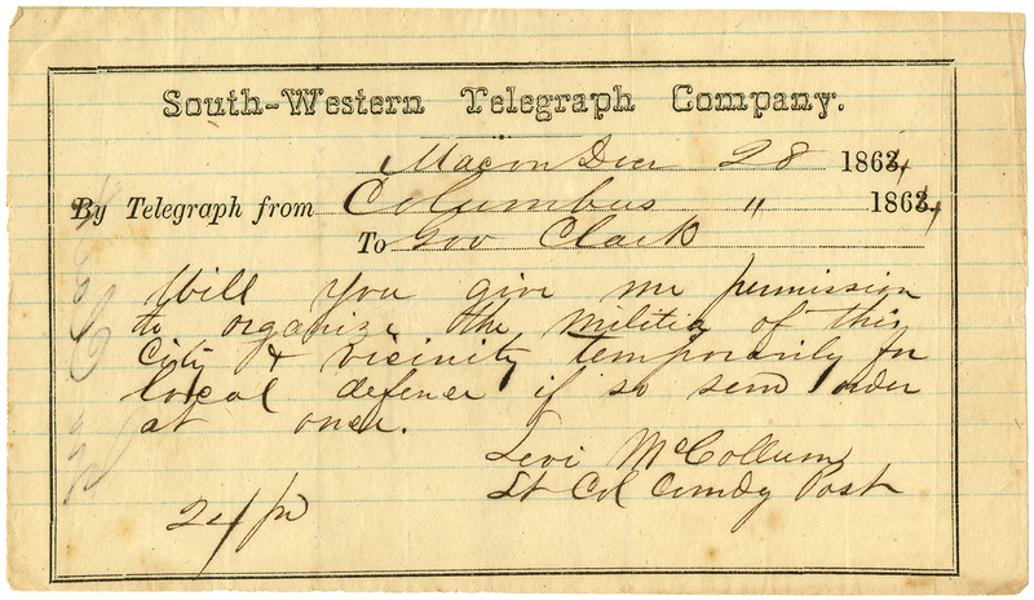 South-Western Telegraph Company.
Macon Dec 28 1864
By Telegraph from Columbus " 1864
To Gov Clark
Will you give me permission
to organize the militia of this
City & vicinity temporarily for
local defence if so send order
at once.
Levi McCollum
Lt Col Comdg Post
24/pd